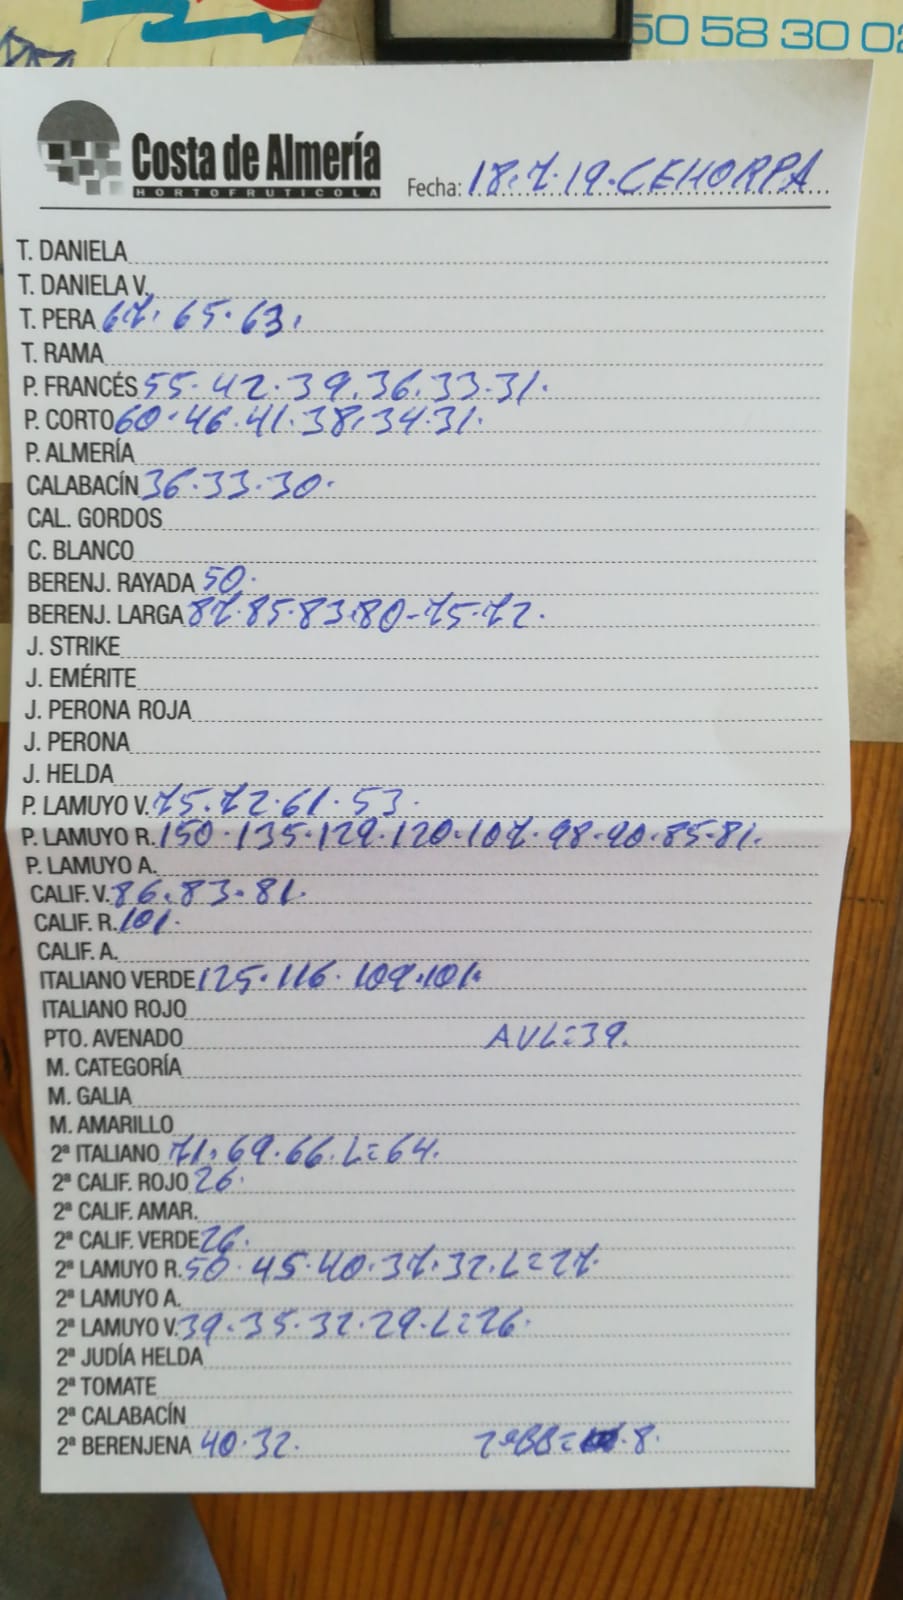 50 58 30 02
Costa de Almería
HORTOFRUTICOLA
Fecha: 18.7.19. CEHORPA
T. DANIELA
T. DANIELA V.
T. PERA 67. 65. 63.
T. RAMA
P. FRANCÉS 55. 42. 39. 36. 33. 31.
P. CORTO 60. 46. 41. 38. 34. 31.
P. ALMERÍA
CALABACÍN 36. 33. 30.
CAL. GORDOS
C. BLANCO
BERENJ. RAYADA 50.
BERENJ. LARGA 87. 85. 83. 80-75. 72.
J. STRIKE
J. EMÉRITE
J. PERONA ROJA
J. PERONA
J. HELDA
P. LAMUYO V. 75. 72. 61. 53.
P. LAMUYO R. 150. 135. 129. 120. 107. 98. 90. 85. 81.
P. LAMUYO A.
CALIF. V. 86. 83. 81.
CALIF. R. 101.
CALIF. A.
ITALIANO VERDE 125. 116. 109. 101.
ITALIANO ROJO
PTO. AVENADO AVL=39.
M. CATEGORÍA
M. GALIA
M. AMARILLO
2ª ITALIANO 71. 69. 66. L=64.
2ª CALIF. ROJO 26.
2ª CALIF. AMAR.
2ª CALIF. VERDE 26.
2ª LAMUYO R. 50. 45. 40. 37. 32. L=27.
2ª LAMUYO A.
2ª LAMUYO V. 39. 35. 32. 29. L=26.
2ª JUDÍA HELDA
2ª TOMATE
2ª CALABACÍN
2ª BERENJENA 40. 32. 2ªBB= 8.